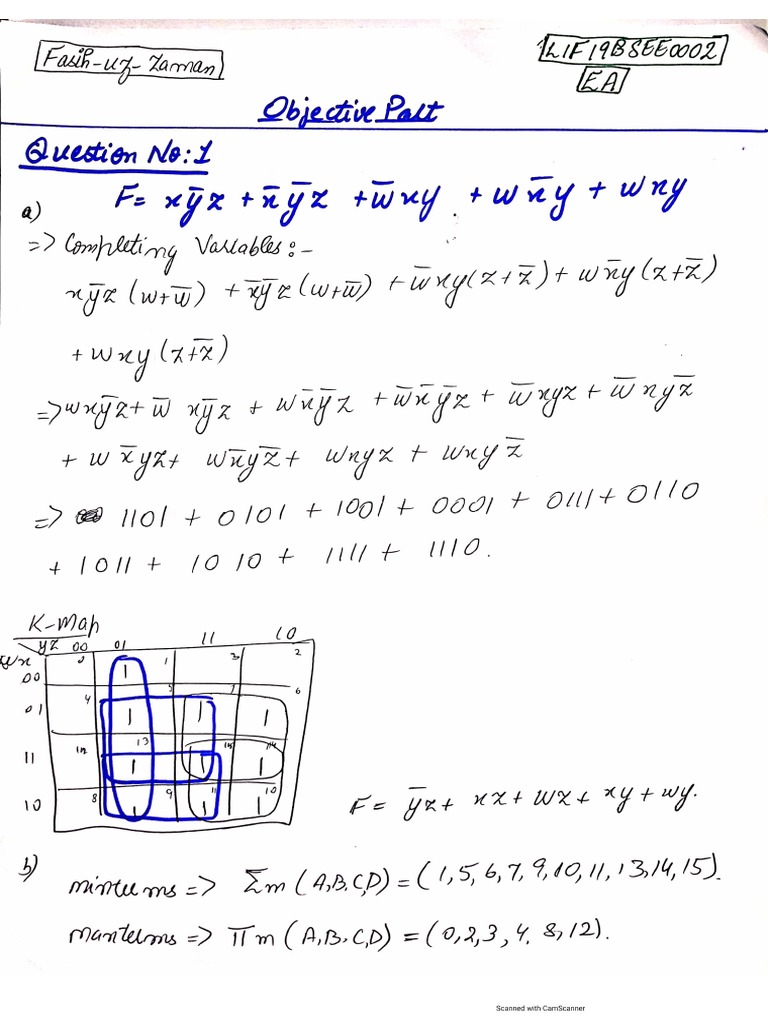 Fasih-uz-Zaman
L1F19BSEE0002
EA
Objective Part
Question No:1
a) F= xȳz + x̄ȳz + w̄xy + wx̄y + wxy
=> Completing Variables:-
xȳz (w+w̄) + x̄ȳz (w+w̄) + w̄xy(z+z̄) + wx̄y(z+z̄)
+ wxy (z+z̄)
=> wxȳz + w̄xȳz + wx̄ȳz + w̄x̄ȳz + w̄xyz + w̄xyz̄
+ wx̄yz + wx̄yz̄ + wxyz + wxyz̄
=> 1101 + 0101 + 1001 + 0001 + 0111 + 0110
+ 1011 + 1010 + 1111 + 1110.
K-Map
yz 00 01 11 10
wx
00 0 1 1 3 2
01 4 1 5 1 7 1 6
11 12 1 13 1 15 1 14
10 8 1 9 1 11 1 10
F= ȳz + xz + wz + xy + wy.
b) minterms => Σm (A,B,C,D) = (1,5,6,7,9,10,11,13,14,15).
maxterms => Πm (A,B.C,D) = (0,2,3,4. 8,12).
Scanned with CamScanner